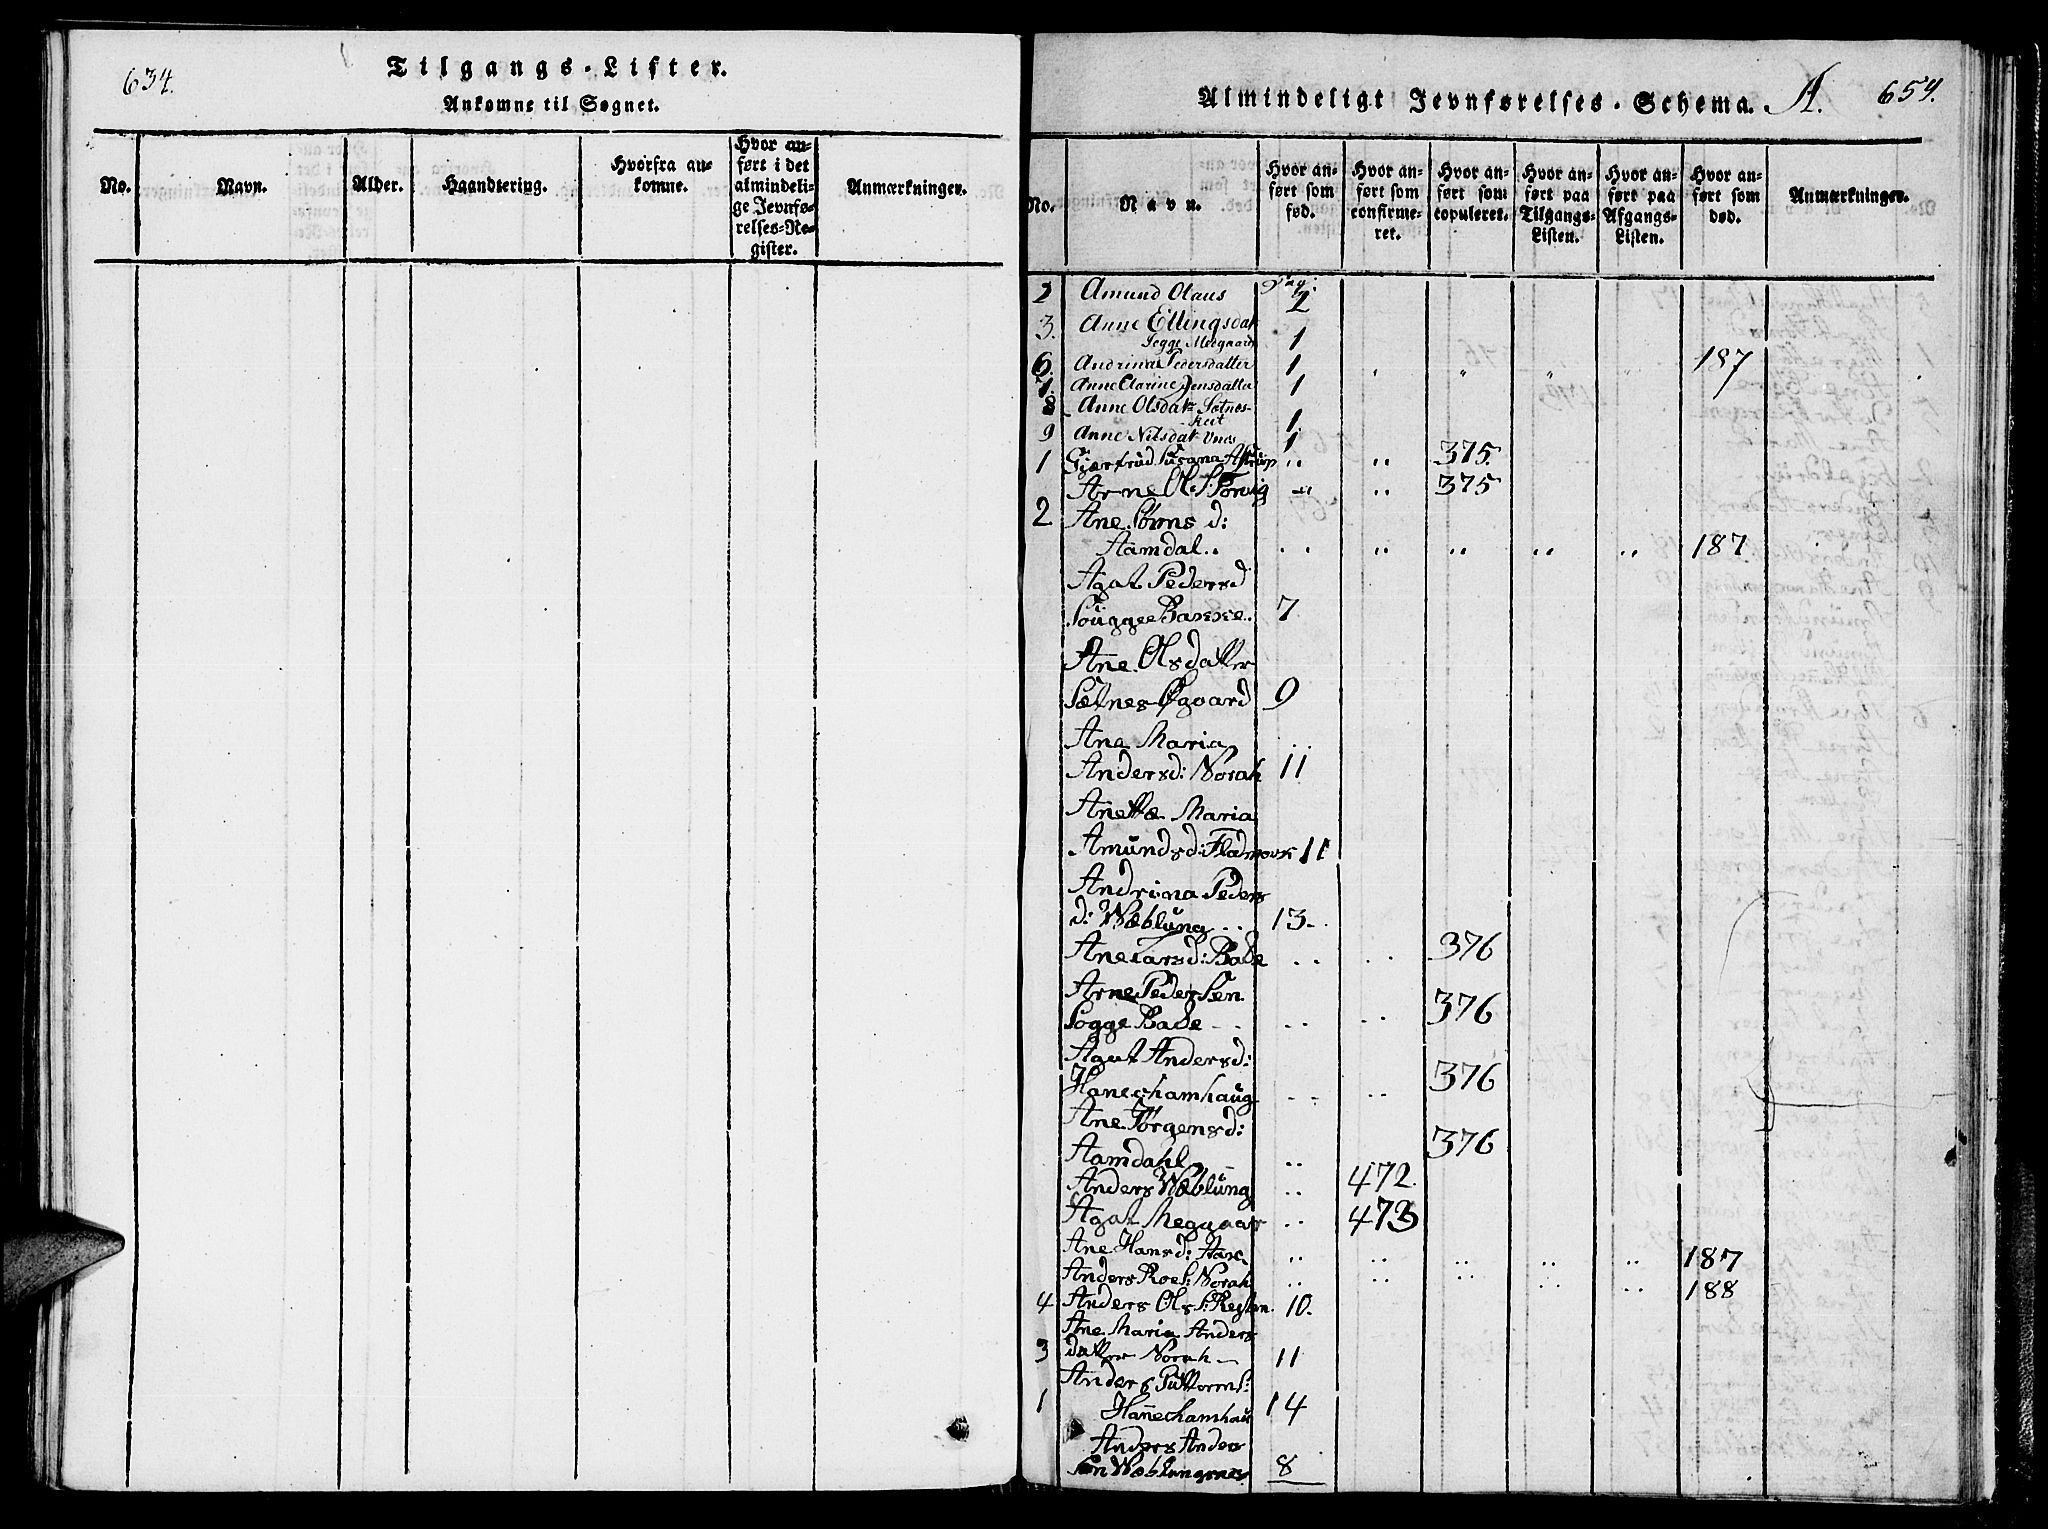 634.
Tilgangs-Lister.
Ankomne til Sognet.
No.
Navn.
Alder.
Haandtering.
Hvorfra an-
komne.
Hvor an-
ført i det
almindeli-
ge Jevnfø-
relses-Re-
gister.
Anmærkninger.
Almindeligt Jevnførelses-Schema. A. 654.
No.
Navn.
Hvor an-
ført som
fød.
Hvor an-
ført som
confirme-
ret.
Hvor an-
ført som
copuleret.
Hvor an-
ført paa
Tilgangs-
Listen.
Hvor an-
ført paa
Afgangs-
Listen.
Hvor an-
ført som
død.
Anmærkninger.
Pag:
2 Amund Olaus 2
3. Anne Ellingsdat
Megaard 1
6. Andrina Pedersdatter 1 " " " " 187
7. Anne Clarine Jensdatter 1
8 Anne Olsdatr Sætnes-
1
9 Anne Nilsdatr 1
1 Giærtrud Susana Astrup " " 375.
Arne Ols: Torvig " " 375
2 Ane Sørns d:
Aamdal.. " " " " " 187
Agat Pedersd
7
Ane Olsdatter
Sætnes Øgaard 9
Ane Maria
Andersd: Norah 11
Anette Maria
Amundsd: Fladmark 11
Andrina Peders
d: Wæblung .. 13.
Ane Larsd: Bade .. .. 376
Arne Pedersen
Sogge Bade .. .. 376
Agat Andersd:
Hanechamhaug .. .. 376
Ane Jørgensd:
Aamdahl .. 376
Anders Wæblung .. 472.
Agat Meggaar .. 473
Ane Hansd: .. .. .. .. .. 187
Anders Roes: Norah .. .. .. .. .. 188
4 Anders Ols: 10.
Ane Maria Anders
3 datter Norah — 11
Anders Guttorms:
1 Hanechamhau 14
Anders Ander
sen Wæblungsnes 8